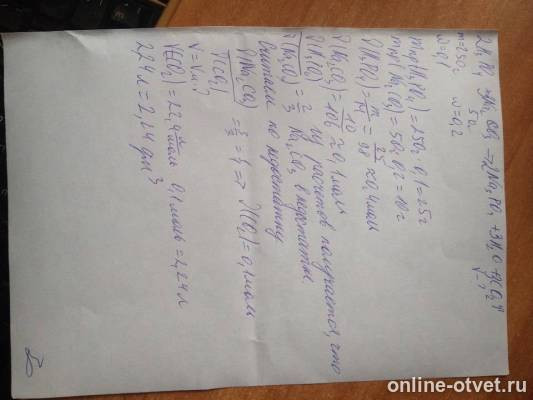 2H₃PO₄ + 3Na₂CO₃ → 2Na₃PO₄ + 3H₂O + 3CO₂↑
m=250г 50г V-?
ω=0,1 ω=0,2
mчв(H₃PO₄) = 250 · 0,1 = 25г
mчв(Na₂CO₃) = 50 · 0,2 = 10г
ν(H₃PO₄) = m/M = 25/98 ≈ 0,4 моль
ν(Na₂CO₃) = 10/106 ≈ 0,1 моль
ν(H₃PO₄) / ν(Na₂CO₃) = 2/3 из расчетов получается, что Na₂CO₃ в недостатке.
Считаем по недостатку
ν(CO₂) / ν(Na₂CO₃) = 3/3 = 1/1 ⇒ ν(CO₂) = 0,1 моль
V = Vm · ν
V(CO₂) = 22,4 л/моль · 0,1 моль = 2,24 л
2,24 л = 2,24 дм³
online-otvet.ru